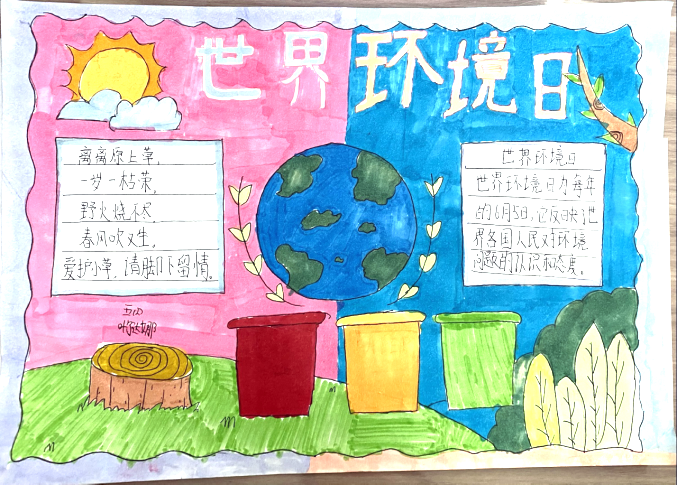 世界环境日
离离原上草，
一岁一枯荣，
野火烧不尽，
春风吹又生，
爱护小草，请脚下留情。
世界环境日
世界环境日为每年
的6月5日，它反映了世
界各国人民对环境
问题的认识和态度。